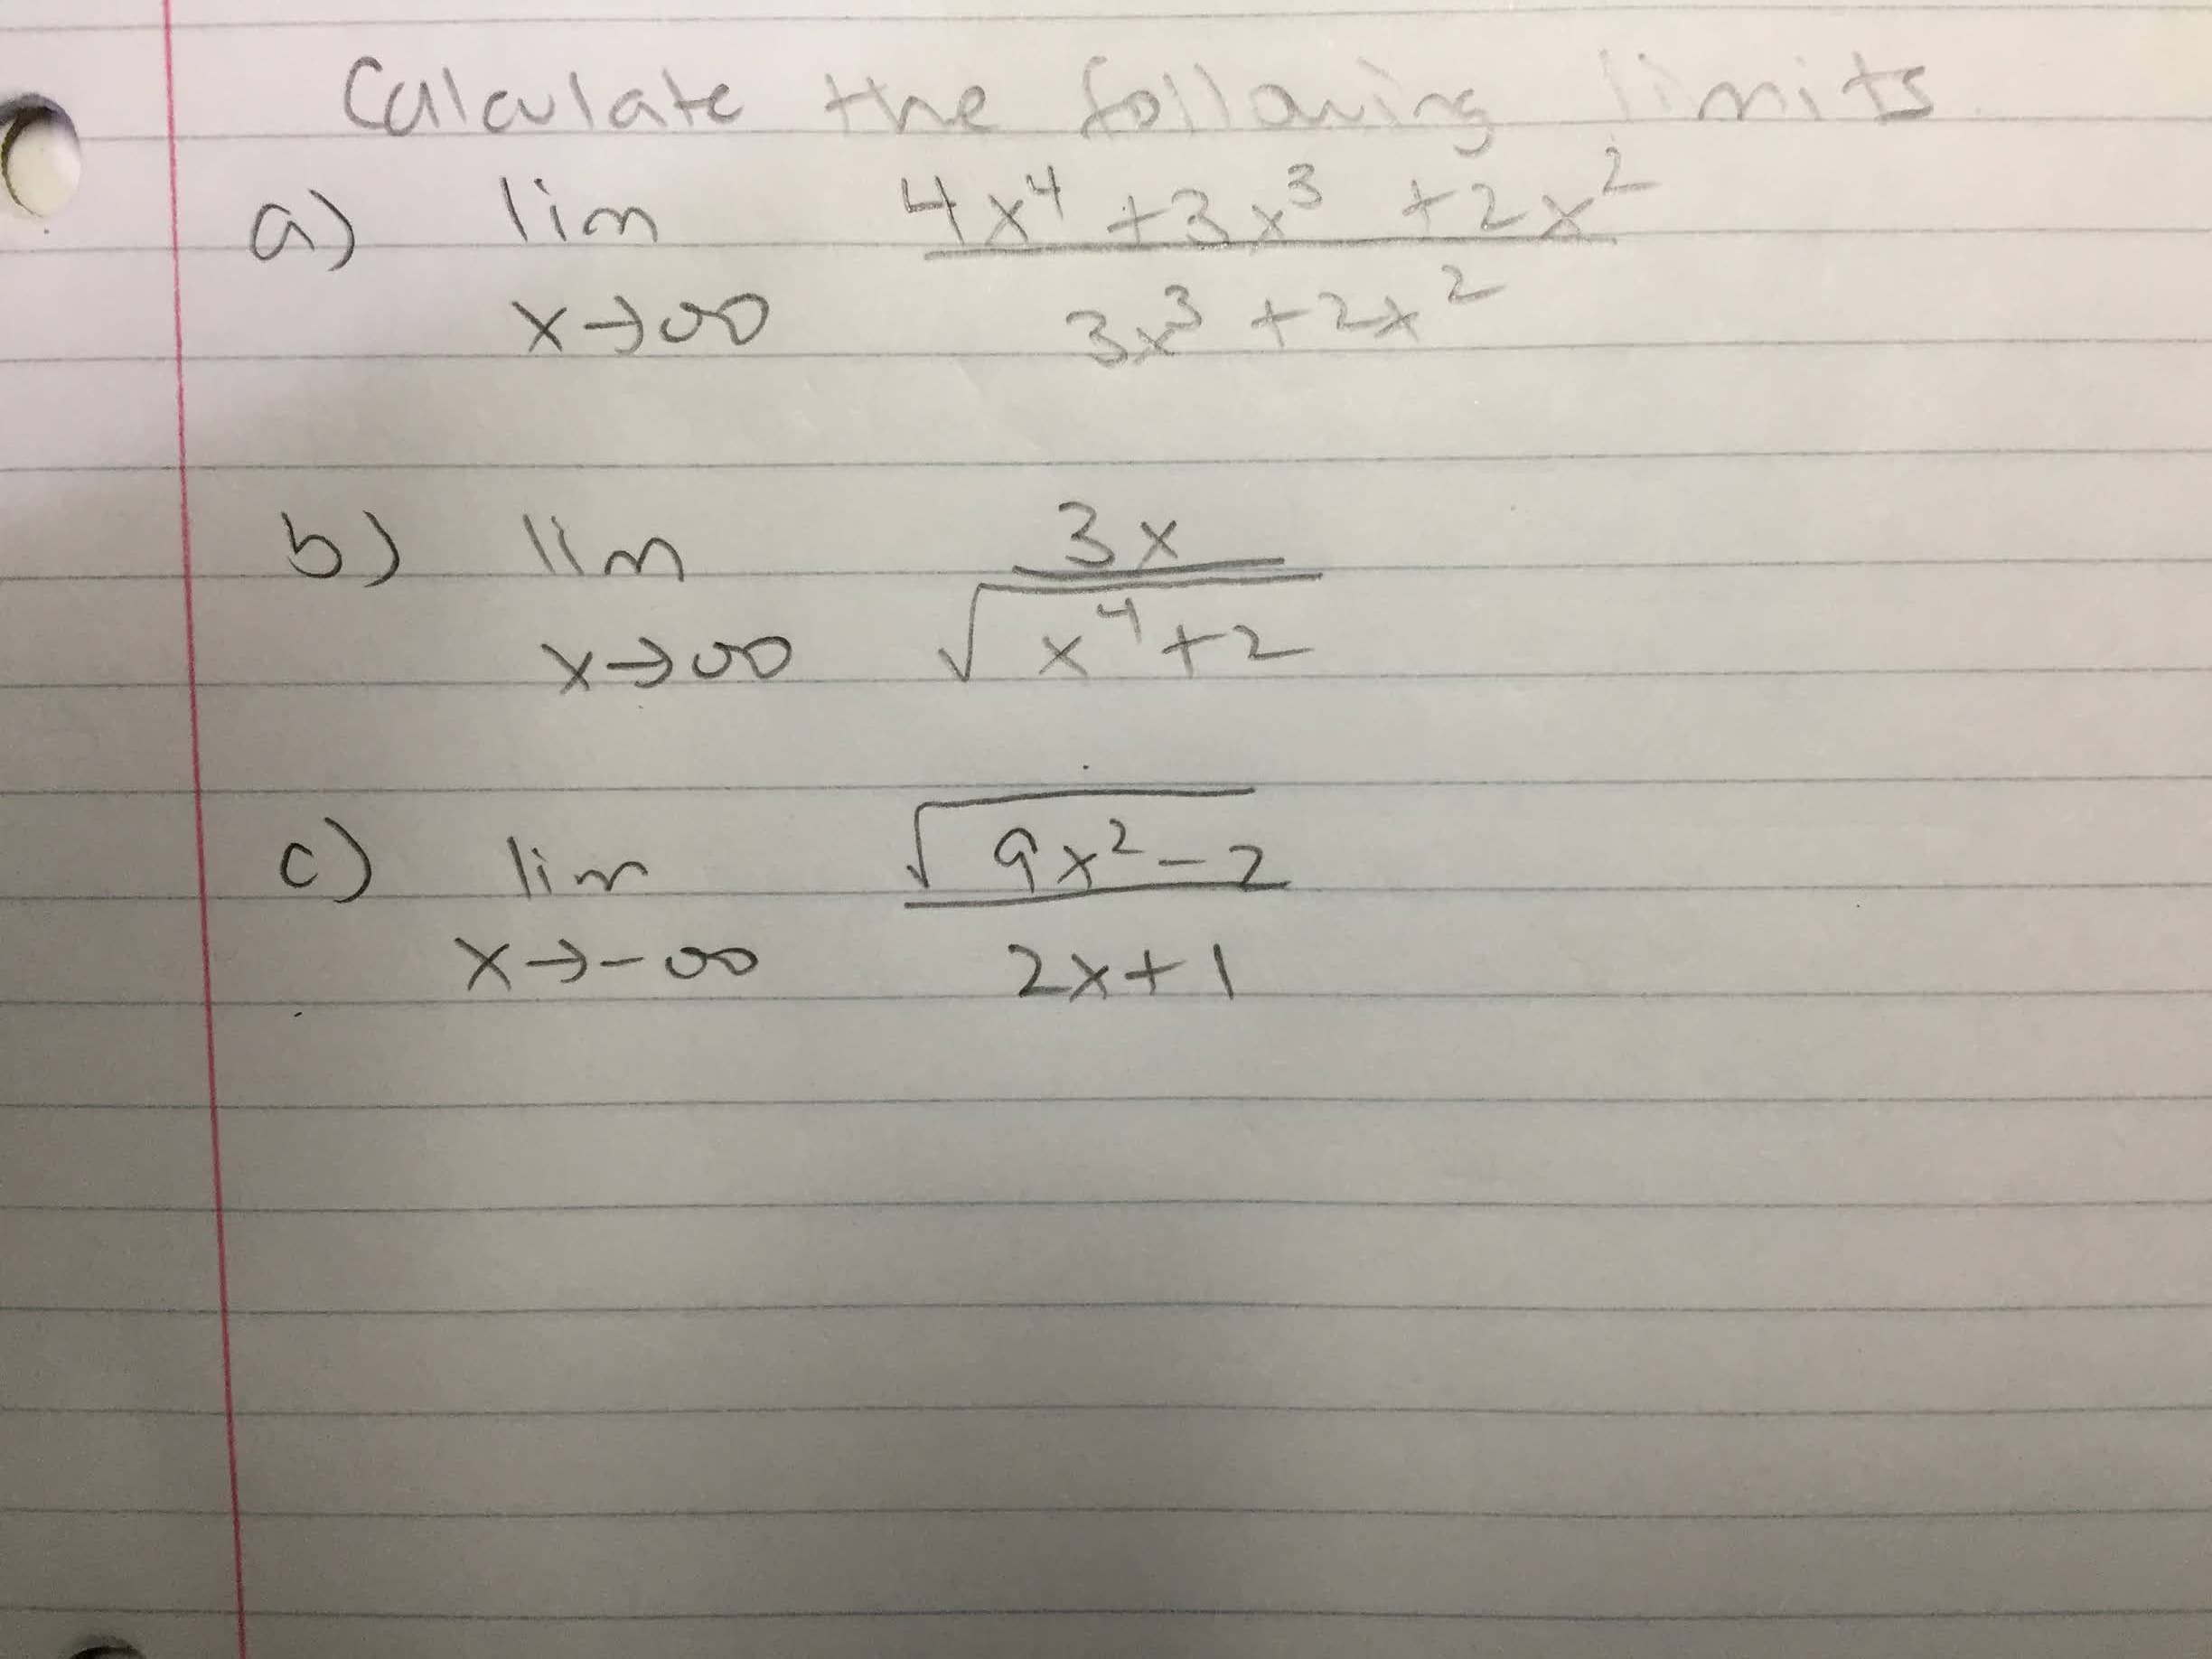 Calculate the following limits
a) lim 4x⁴ + 3x³ + 2x²
x→∞ 3x³ + 2x²
b) lim 3x
x→∞ √x⁴+2
c) lim √9x²-2
x→-∞ 2x+1